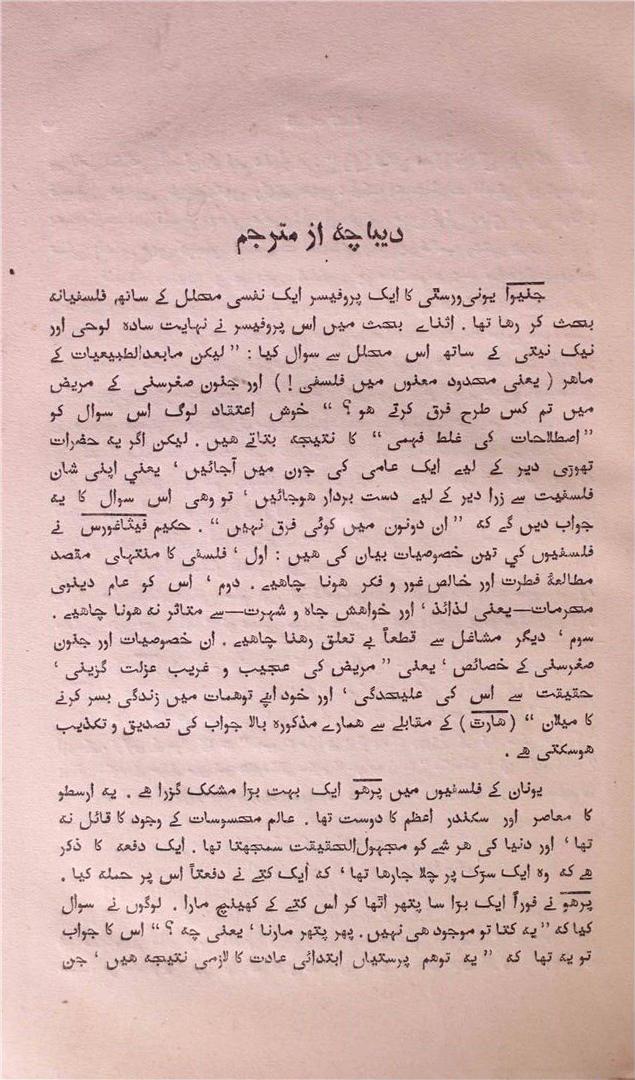 دیباچۂ از مترجم
جنیوا یونی ورسٹی کا ایک پروفیسر ایک نفسی محلل کے ساتھ فلسفیانہ
بحث کر رہا تھا . اثنائے بحث میں اس پروفیسر نے نہایت سادہ لوحی اور
نیک نیتی کے ساتھ اس محلل سے سوال کیا : ” لیکن مابعدالطبیعیات کے
ماہر ( یعنی محدود معنوں میں فلسفی ! ) اور جنون صغرسنی کے مریض
میں تم کس طرح فرق کرتے ہو ؟ “ خوش اعتقاد لوگ اس سوال کو
” اصطلاحات کی غلط فہمی “ کا نتیجہ بتاتے ہیں . لیکن اگر یہ حضرات
تھوڑی دیر کے لیے ایک عامی کی جون میں آجائیں ‘ یعنی اپنی شان
فلسفیت سے زرا دیر کے لیے دست بردار ہوجائیں ‘ تو وہی اس سوال کا یہ
جواب دیں گے کہ ” ان دونوں میں کوئی فرق نہیں “ . حکیم فیثاغورس نے
فلسفیوں کی تین خصوصیات بیان کی ہیں : اول ‘ فلسفی کا منتہای مقصد
مطالعۂ فطرت اور خالص غور و فکر ہونا چاہیے . دوم ‘ اس کو عام دینوی
محرمات—یعنی لذائذ ‘ اور خواہش جاہ و شہرت—سے متاثر نہ ہونا چاہیے .
سوم ‘ دیگر مشاغل سے قطعاً بے تعلق رہنا چاہیے . ان خصوصیات اور جنون
صغرسنی کے خصائص ‘ یعنی ” مریض کی عجیب و غریب عزلت گزینی ‘
حقیقت سے اس کی علیحدگی ‘ اور خود اپنے توہمات میں زندگی بسر کرنے
کا میلان “ ( ہارٹ ) کے مقابلے سے ہمارے مذکورہ بالا جواب کی تصدیق و تکذیب
ہوسکتی ہے .
یونان کے فلسفیوں میں پرھو ایک بہت بڑا مشکک گزرا ہے . یہ ارسطو
کا معاصر اور سکندر اعظم کا دوست تھا . عالم محسوسات کے وجود کا قائل نہ
تھا ‘ اور دنیا کی ہر شے کو مجہول‌الحقیقت سمجھتا تھا . ایک دفعہ کا ذکر
ہے کہ وہ ایک سڑک پر چلا جارہا تھا ‘ کہ ایک کتے نے دفعتاً اس پر حملہ کیا .
پرھو نے فوراً ایک بڑا سا پتھر اٹھا کر اس کتے کے کھینچ مارا . لوگوں نے سوال
کیا کہ ” یہ کتا تو موجود ہی نہیں . پھر پتھر مارنا ‘ یعنی چہ ؟ “ اس کا جواب
تو یہ تھا کہ ” یہ توہم پرستیاں ابتدائی عادت کا لازمی نتیجہ ہیں ‘ جن